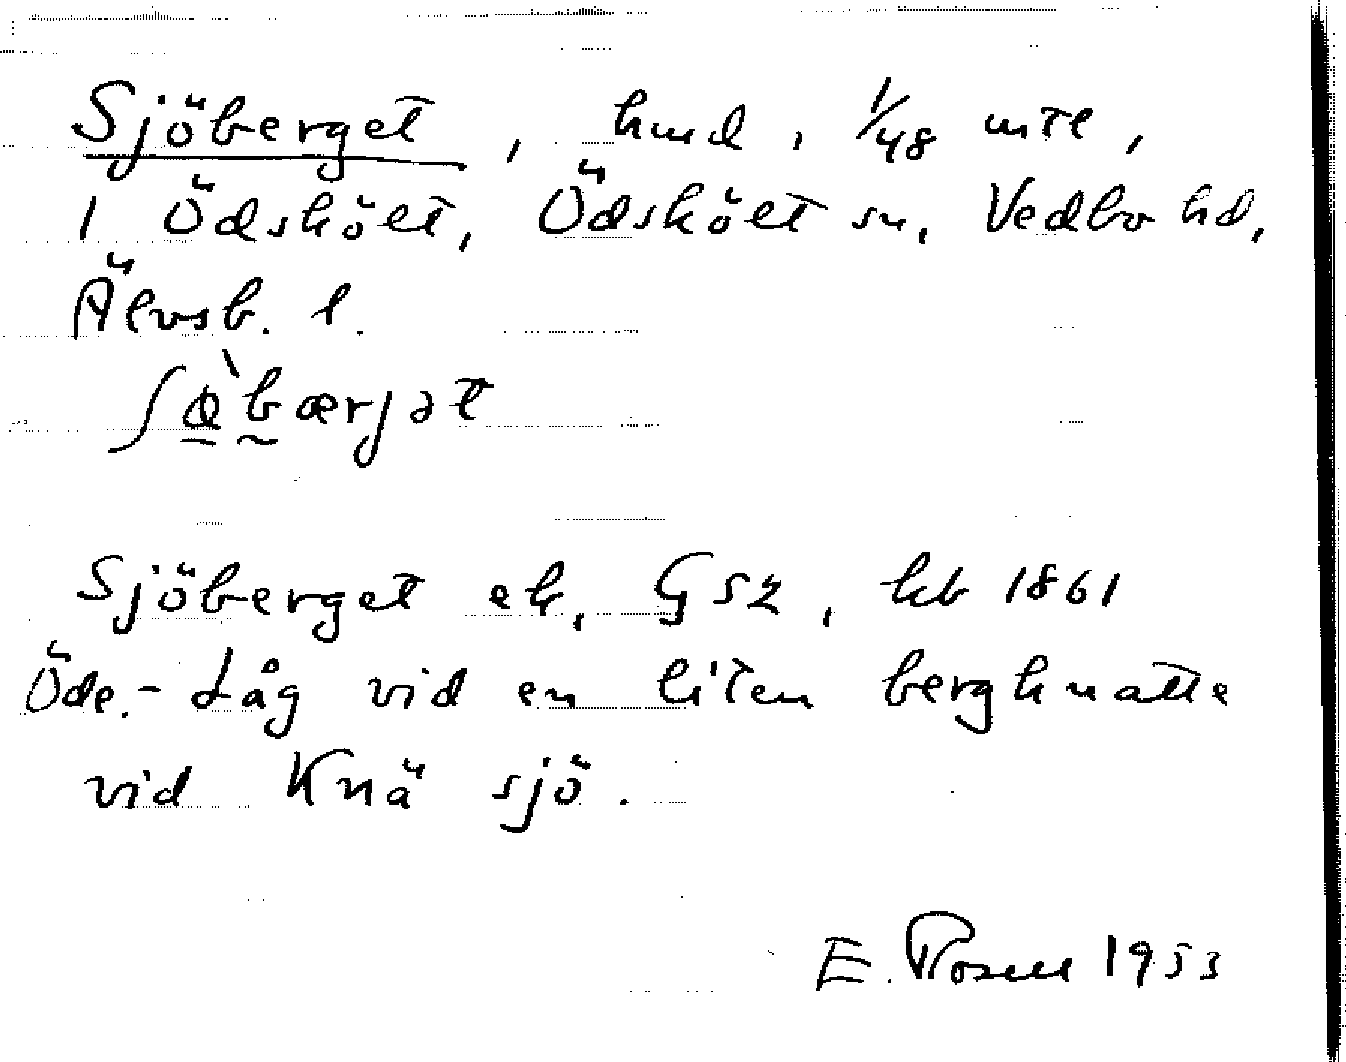 Sjöberget, hmd, 1/48 mtl,
1 Ödskölt, Ödskölt sn, Vedbo hd,
Älvsb. l.
Sjöberget ek, GSZ, hb 1861
Öde.- Låg vid en liten bergknatte
vid Knä sjö.
E. Rosell 1953